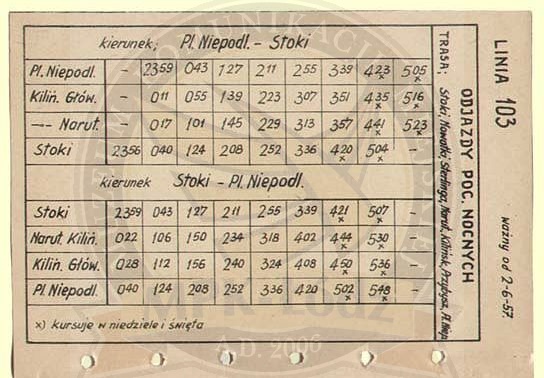 kierunek; Pl. Niepodl. - Stoki
Pl. Niepodl. - 23 59 0 43 1 27 2 11 2 55 3 39 4 23 x 5 05 x
Kiliń. Głów. - 0 11 0 55 1 39 2 23 3 07 3 51 4 35 x 5 16 x
-"- Narut. - 0 17 1 01 1 45 2 29 3 13 3 57 4 41 x 5 23 x
Stoki 23 56 0 40 1 24 2 08 2 52 3 36 4 20 x 5 04 x -
kierunek Stoki - Pl. Niepodl.
Stoki 23 59 0 43 1 27 2 11 2 55 3 39 4 21 x 5 07 x -
Narut. Kiliń. 0 22 1 06 1 50 2 34 3 18 4 02 4 44 x 5 30 x -
Kiliń. Głów. 0 28 1 12 1 56 2 40 3 24 4 08 4 50 x 5 36 x -
Pl. Niepodl. 0 40 1 24 2 08 2 52 3 36 4 20 5 02 x 5 48 x -
x) kursuje w niedziele i święta
LINIA 103
ważny od 2-6-57.
ODJAZDY POC. NOCNYCH
TRASA; Stoki, Nowotki, Sterlinga, Narut., Kilińsk., Przybysz., Pl. Niep.
A.D. 2006